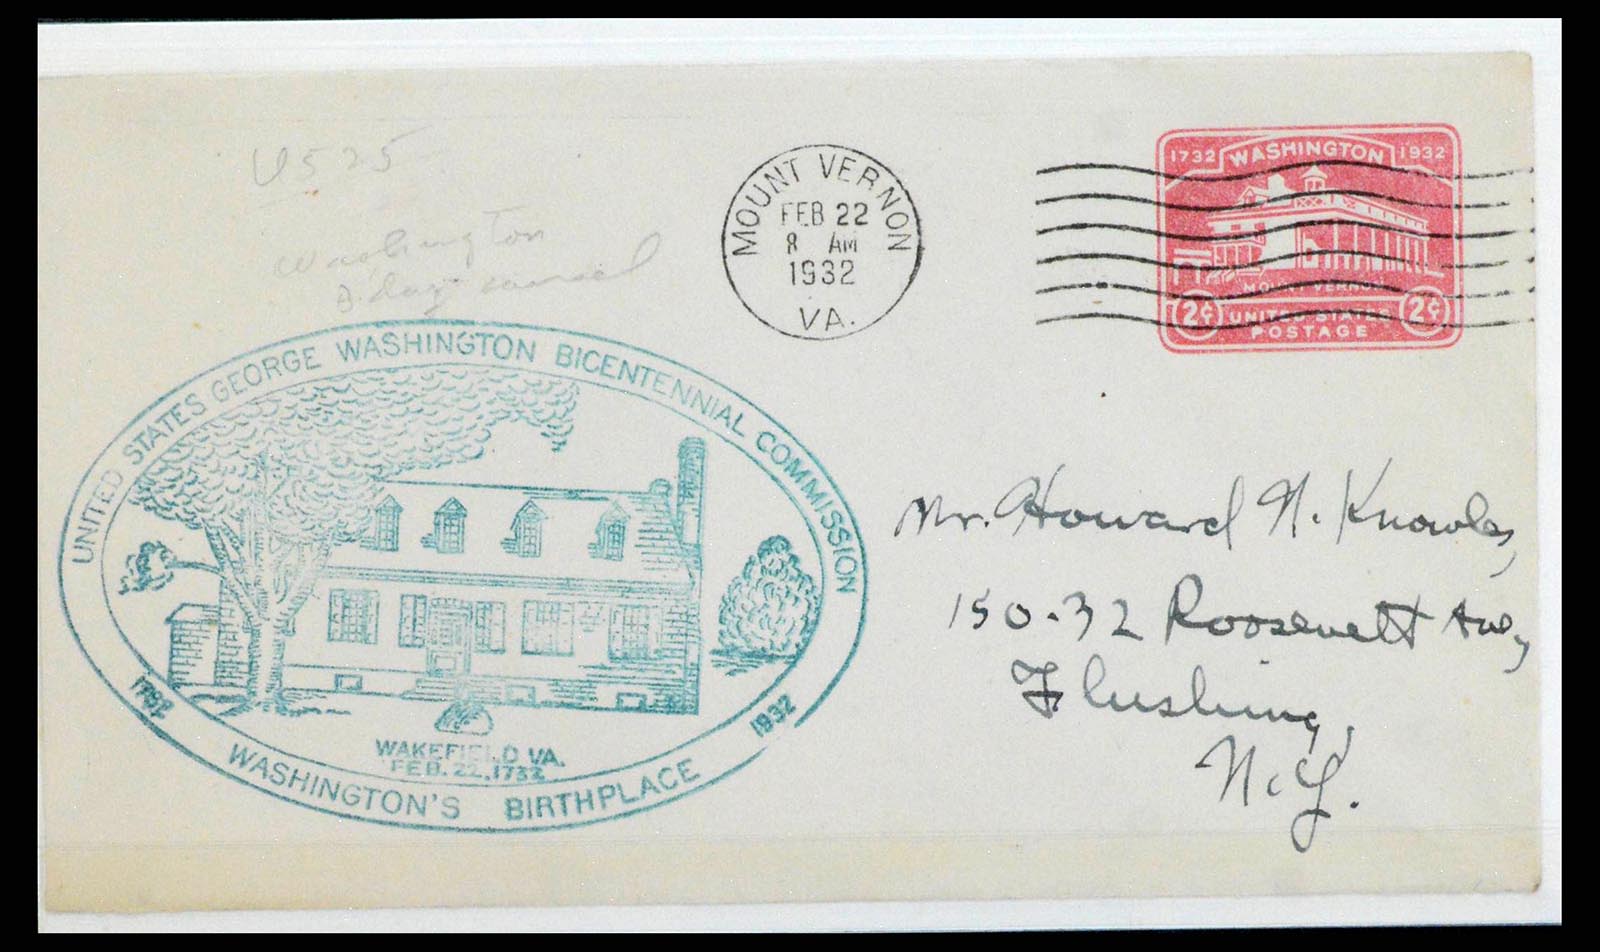 U525
Washington
MOUNT VERNON
FEB 22
8 AM
1932
VA.
1732 WASHINGTON 1932
MOUNT VERNON
2¢ UNITED STATES 2¢
POSTAGE
UNITED STATES GEORGE WASHINGTON BICENTENNIAL COMMISSION
1732 1932
WAKEFIELD VA.
FEB. 22, 1732
WASHINGTON'S BIRTHPLACE
Mr. Howard N. Knowles,
150-32 Roosevelt Ave,
Flushing,
N.Y.